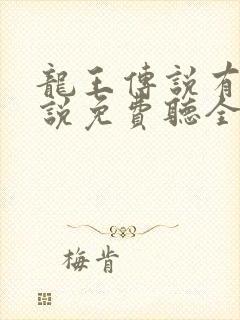 龍王傳説有
説免費聽全
梅肯